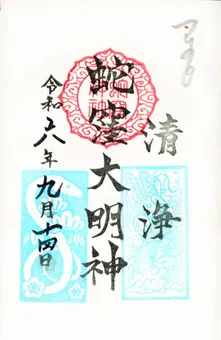 清浄
蛇窪大明神
令和六年九月十四日